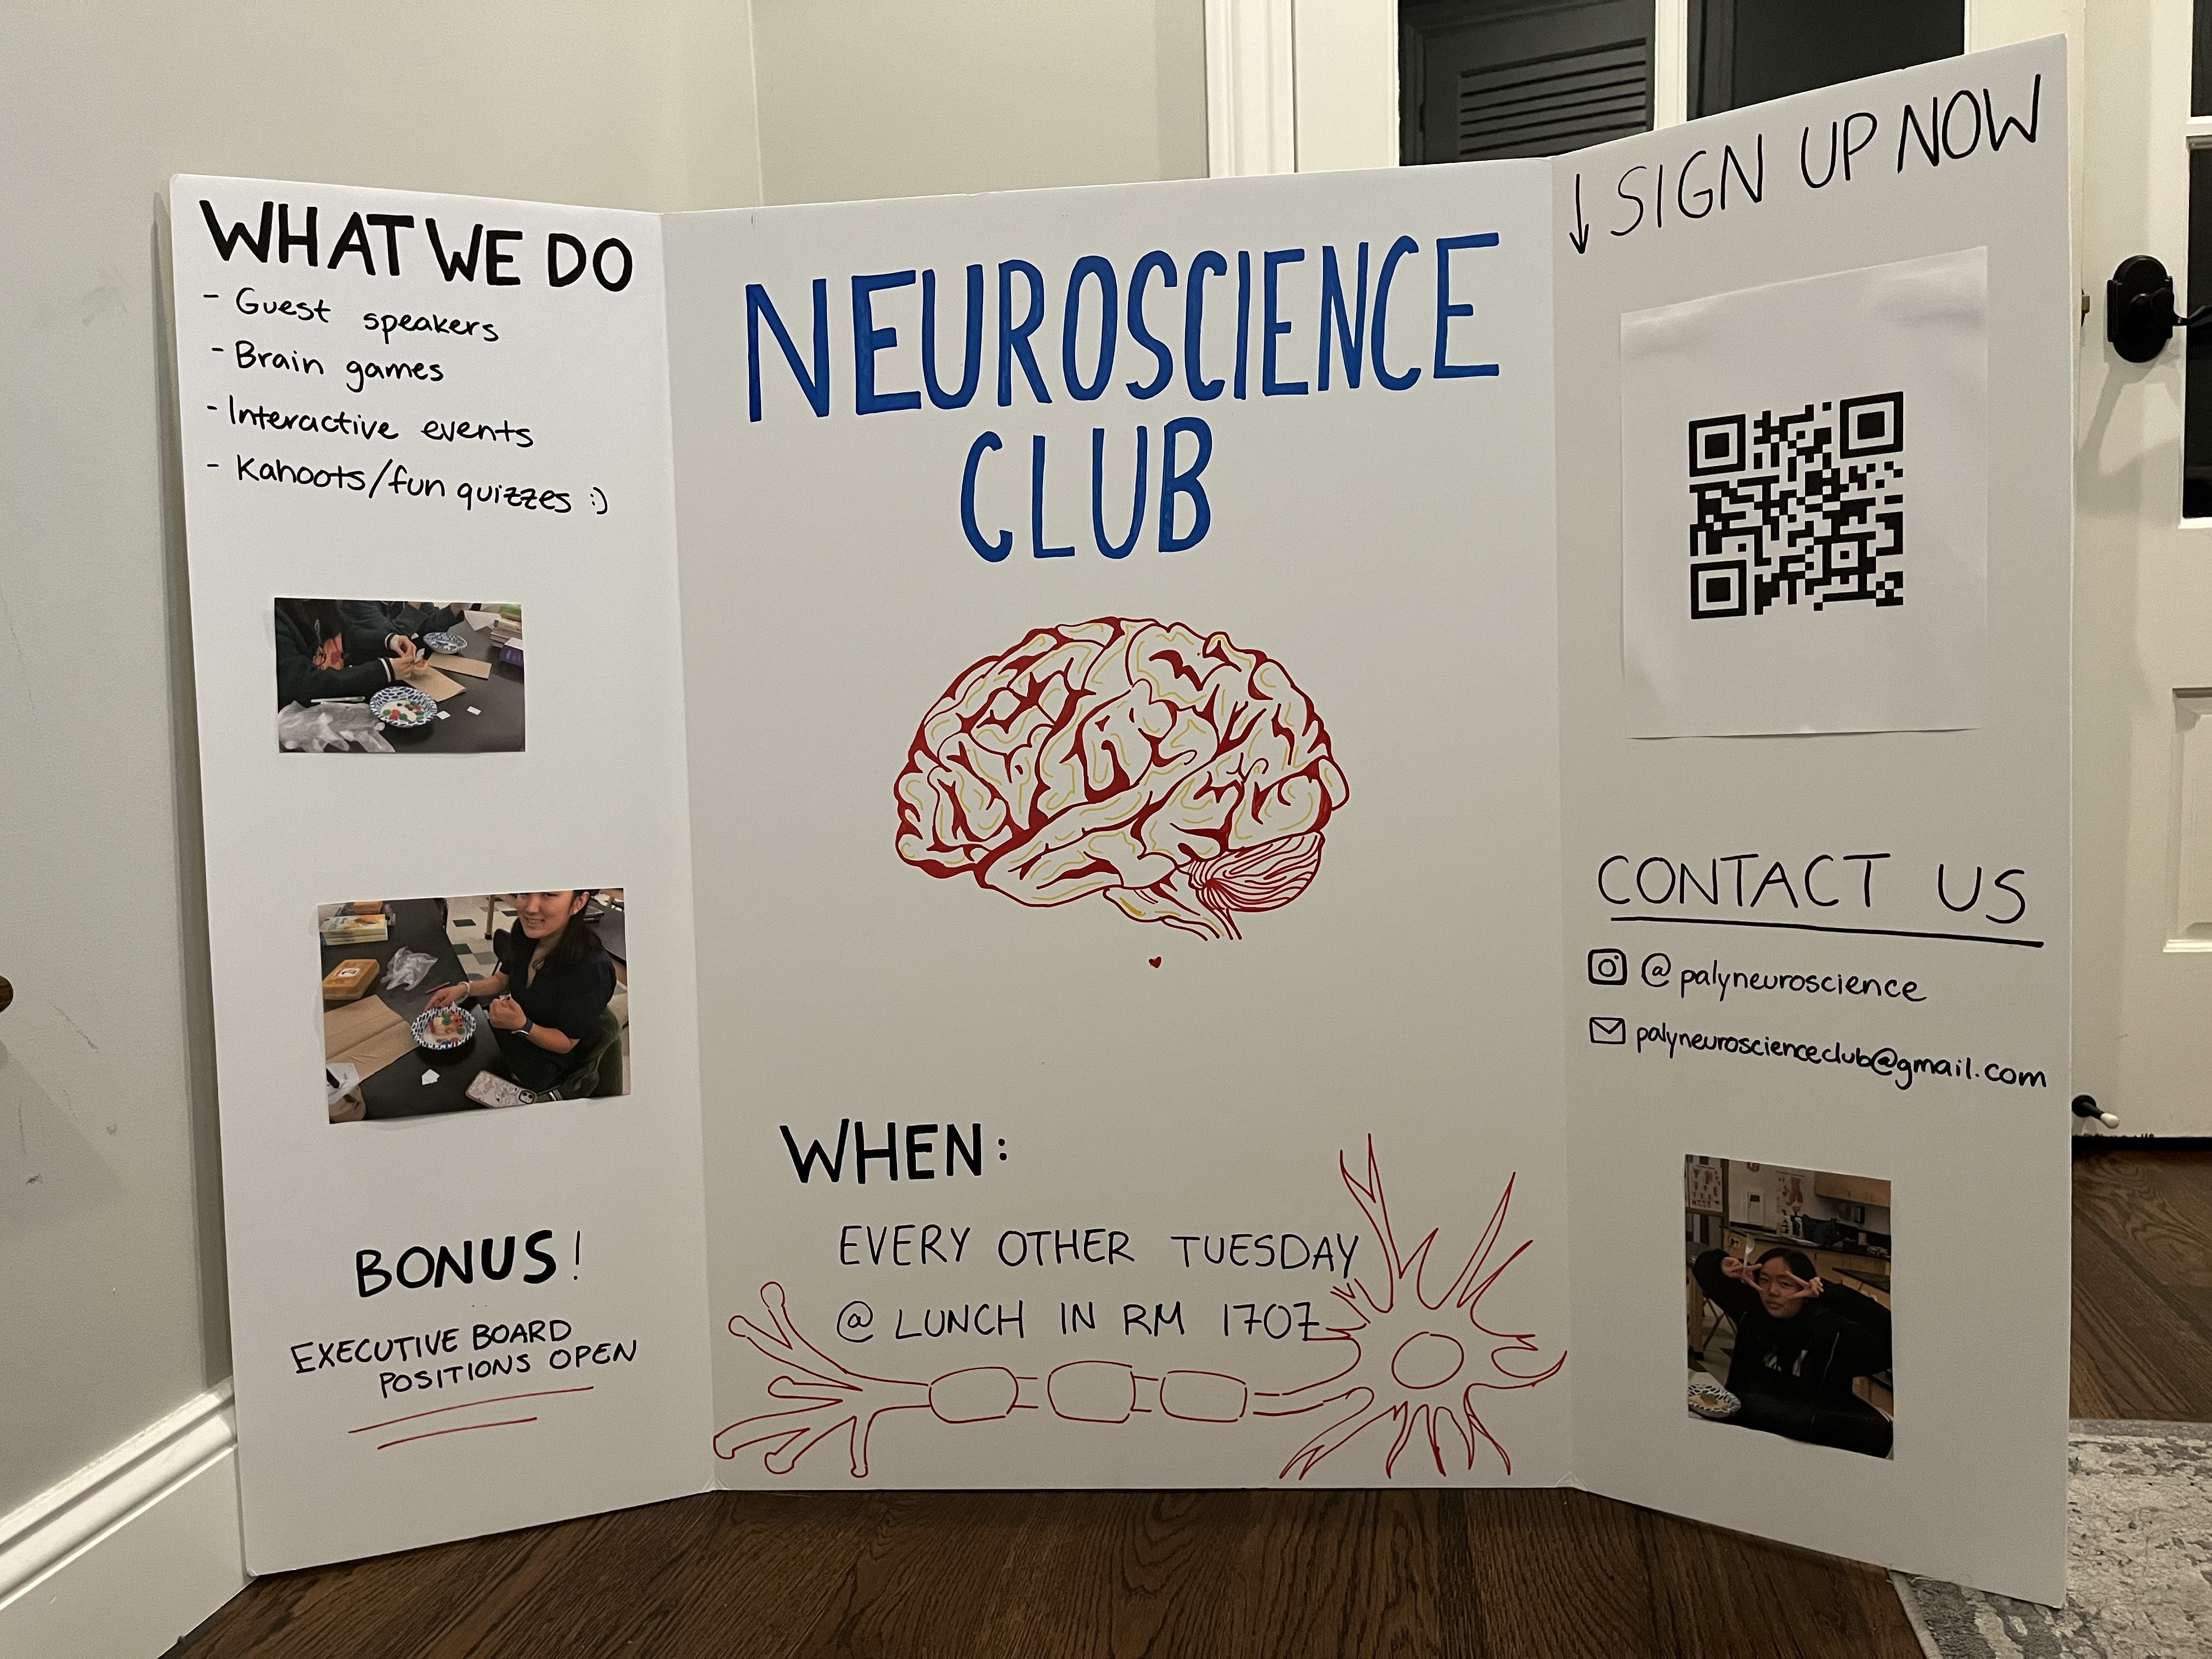 WHAT WE DO
- Guest speakers
- Brain games
- Interactive events
- Kahoots/fun quizzes :)
BONUS!
EXECUTIVE BOARD
POSITIONS OPEN
NEUROSCIENCE
CLUB
WHEN:
EVERY OTHER TUESDAY
@ LUNCH IN RM 1707
↓ SIGN UP NOW
CONTACT US
@palyneuroscience
palyneuroscienceclub@gmail.com